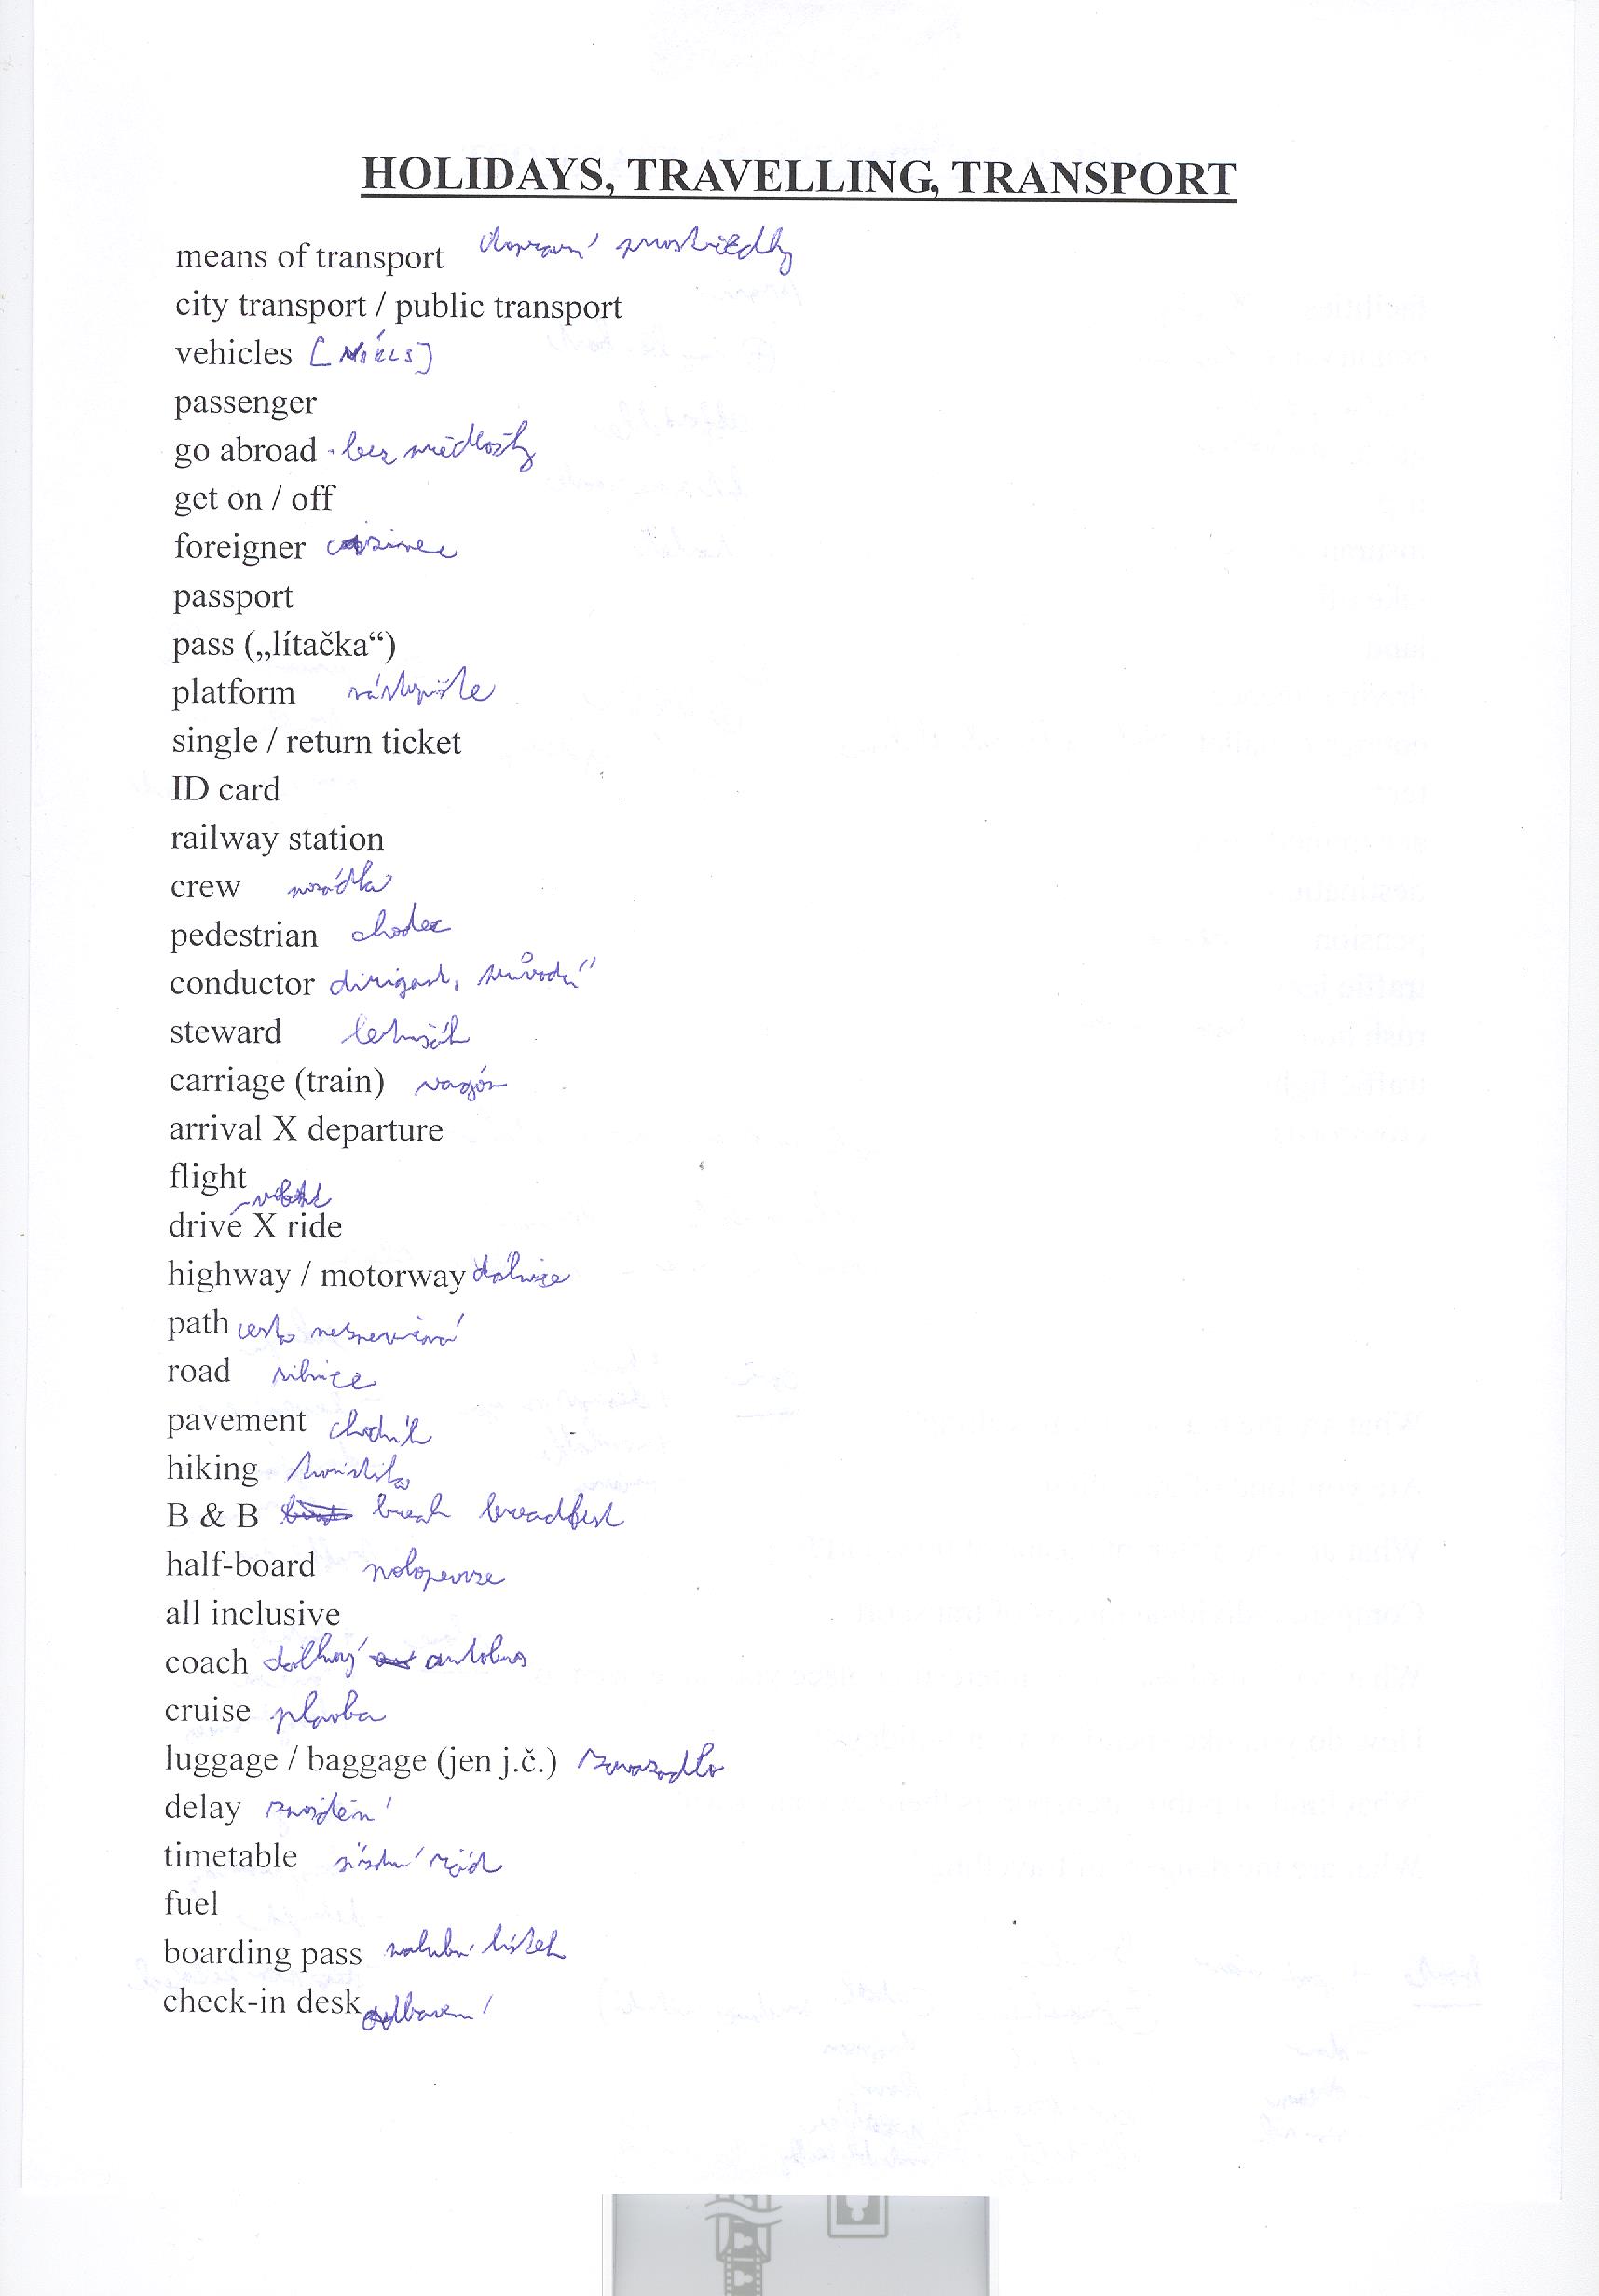 HOLIDAYS, TRAVELLING, TRANSPORT
means of transport dopravní prostředky
city transport / public transport
vehicles
passenger
go abroad - bez předložky
get on / off
foreigner cizinec
passport
pass („lítačka“)
platform nástupiště
single / return ticket
ID card
railway station
crew posádka
pedestrian chodec
conductor dirigent, průvodčí
steward letuška
carriage (train) vagón
arrival X departure
flight
drive X ride
highway / motorway dálnice
path cesta nezpevněná
road silnice
pavement chodník
hiking turistika
B & B break breadfest
half-board polopenze
all inclusive
coach dálkový autobus
cruise plavba
luggage / baggage (jen j.č.) zavazadlo
delay zpoždění
timetable jízdní řád
fuel
boarding pass palubní lístek
check-in desk odbavení